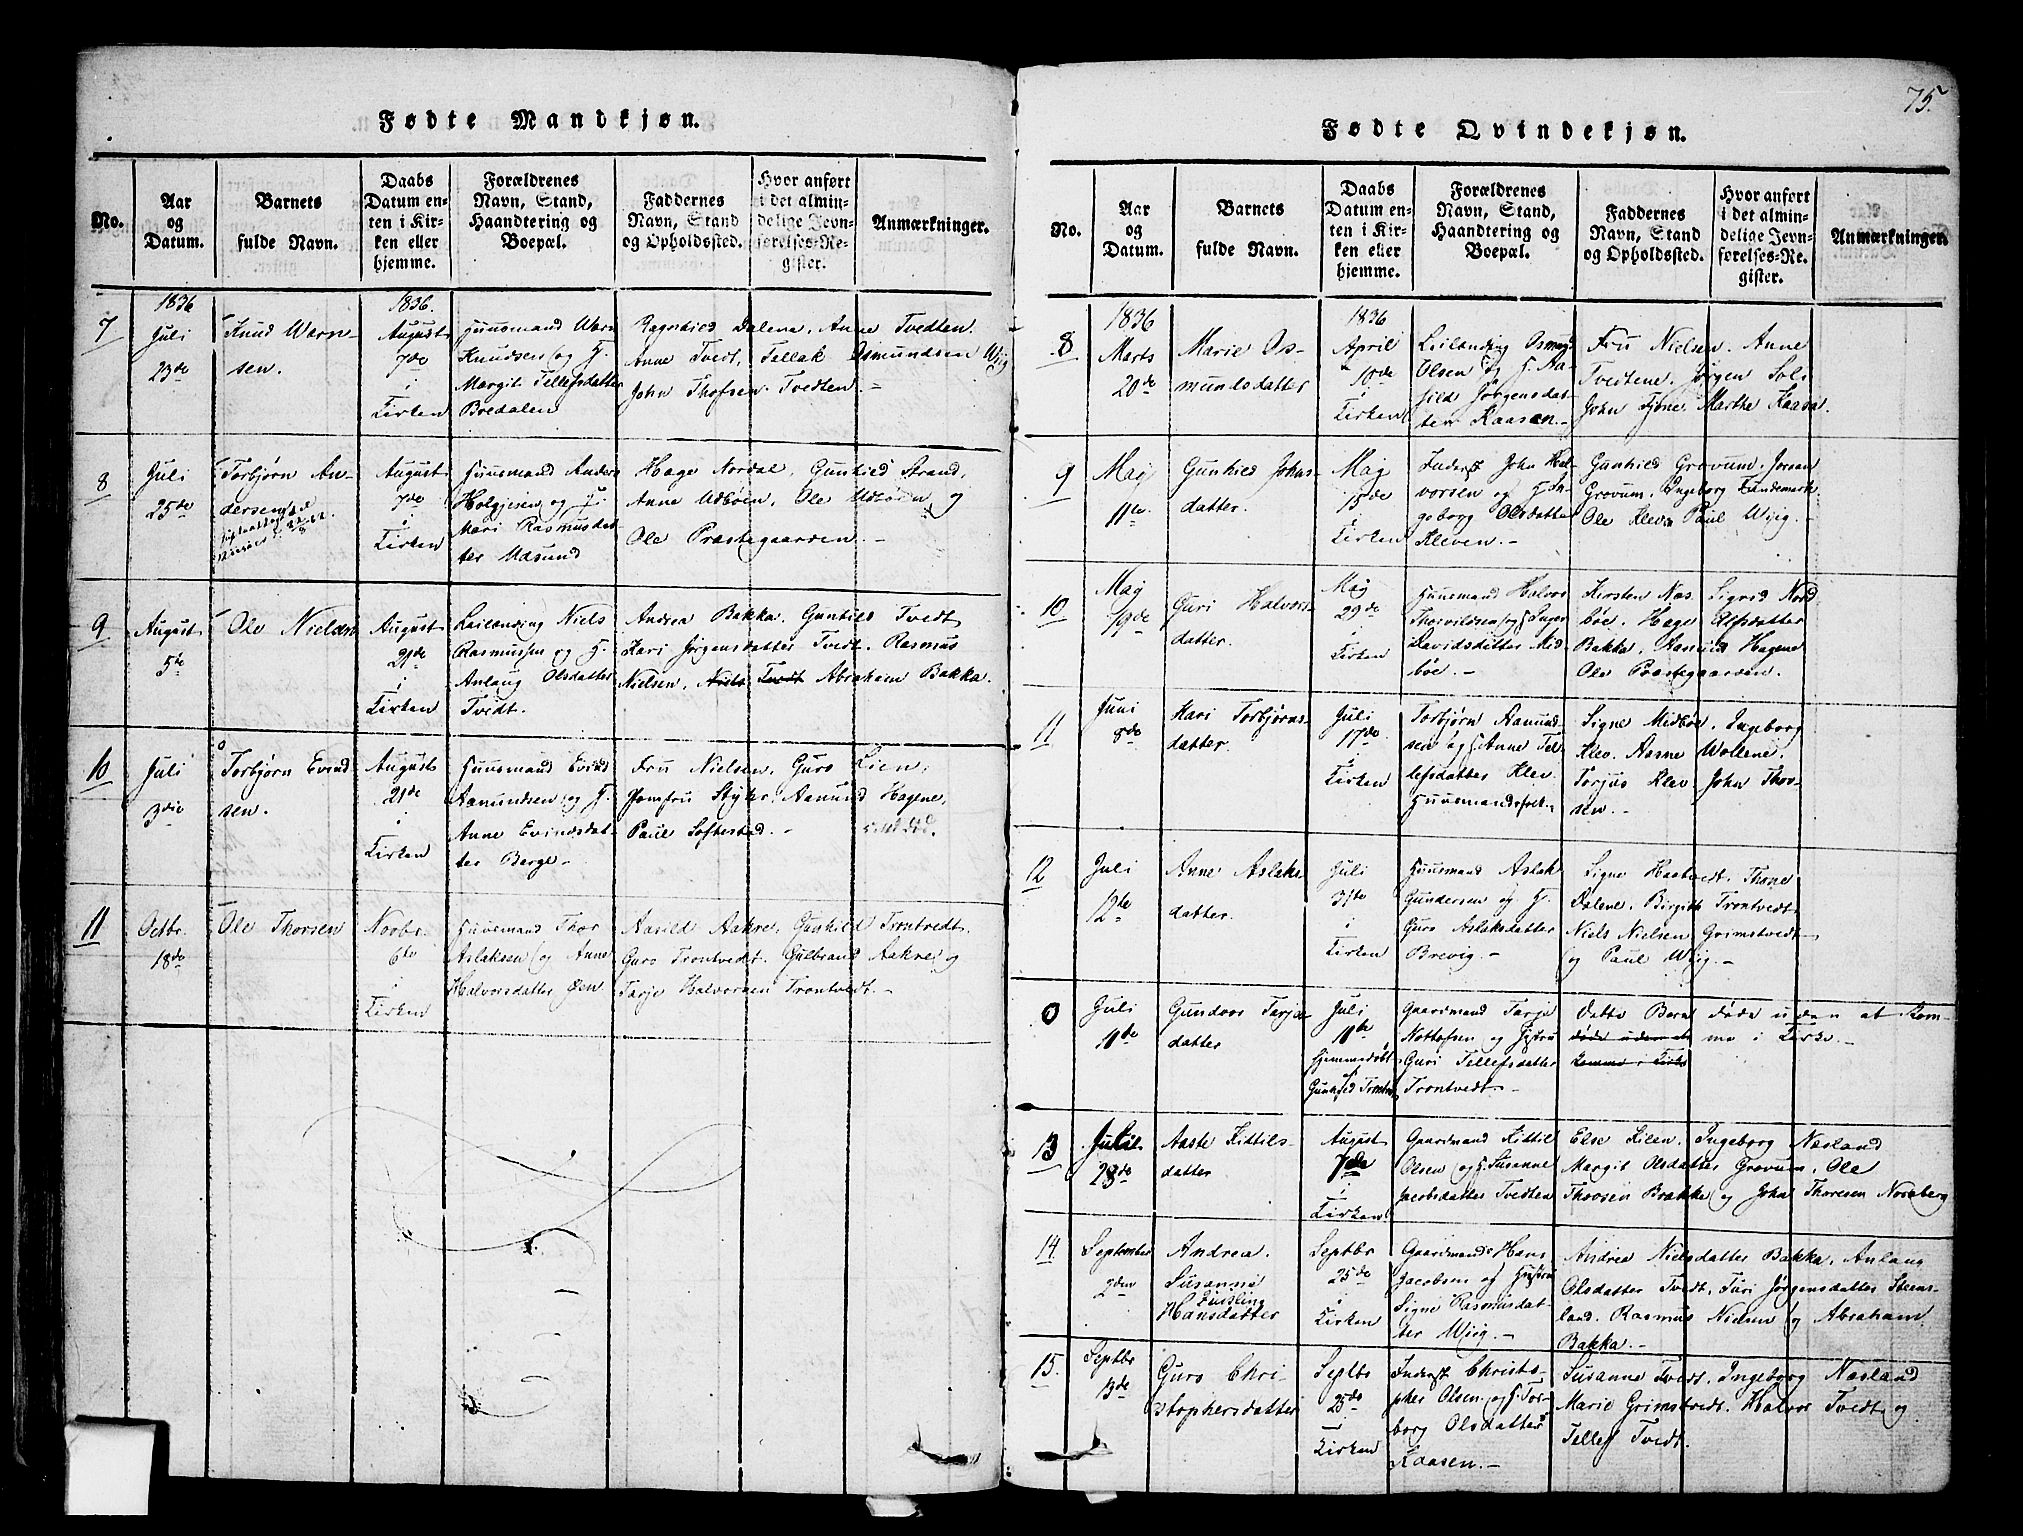 75.
Fødte Mandkjøn.
No.
Aar
og
Datum.
Barnets
fulde Navn.
Daabs
Datum en-
ten i Kir-
ken eller
hjemme.
Forældrenes
Navn, Stand,
Haandtering og
Boepæl.
Faddernes
Navn, Stand
og Opholdssted.
Hvor anført
i det almin-
delige Jevn-
førelses-Re-
gister.
Anmærkninger.
7
1836
Juli
23de
Knud Warn-
sen.
1836.
August
7de
i
Kirken
Huusmand Warn
Knudsen og H.
Margit Tellefsdatter
Bredalen
Ragnhild Dalene, Anne Tvedten.
Anne Tvedt, Tellak Osmundsen Wiig
John Thofsen Tvedten. –
8
Juli
25de
Torbjørn An-
dersen
August
7de
i
Kirken
Huusmand Anders
Holgjesen og H.
Mari Rasmusdat-
ter Udsund
Hage Nordal, Gunhild Strand,
Anne Udbøen, Ole Udbøen og
Ole Præstegaarden. –
9
August
5te
Ole Nielsen
August
21de
i
Kirken
Leilænding Niels
Rasmussen og H.
Anlaug Olsdatter
Tvedt.
Andrea Bakka, Gunhild Tvedt
Kari Jørgensdatter Tvedt. Rasmus
Nielsen, Niels Tvedt Abraham Bakka.
10
Juli
3die
Torbjørn Evind
sen.
August
21de
i
Kirken
Huusmand Evind
Aamundsen og H.
Anne Evindsdat-
ter Berge –
Fru Nielsen, Guro Lien,
Jomfru Styhr, Aamund Hagene,
Paul Softestad. –
11
Octbr.
18de
Ole Thorsen
Novbr.
6te
i
Kirken
Huusmand Thor
Aslaksen og Anne
Halvorsdatter Øen
Aasild Aakre, Gunhild Trontvedt,
Guro Trontvedt. Gulbrand Aakre og
Tarje Halvorsen Trontvedt. –
Fødte Qvindekjøn.
No.
Aar
og
Datum.
Barnets
fulde Navn.
Daabs
Datum en-
ten i Kir-
ken eller
hjemme.
Forældrenes
Navn, Stand,
Haandtering og
Boepæl.
Faddernes
Navn, Stand
og Opholdssted.
Hvor anført
i det almin-
delige Jevn-
førelses-Re-
gister.
Anmærkninger.
8
1836
Marts
20de
Marie Os-
mundsdatter
1836
April
10de
i
Kirken
Leilænding Osmund
Olsen og H. Aa-
sild Jørgensdat-
ter Kaasen. –
Fru Nielsen. Anne
Tvedtene, Jørgen Sol
John Tjøne, Martha Kaasa.
9
Maj
11te
Gunhild Johns-
datter.
Maj
15de
i
Kirken
Inderst John Hal-
vorsen og H. In-
geborg Olsdatter
Kleven. –
Gunhild Grovum, Joran
Grovum, Ingeborg Landemark
Ole Kleva Paul Wiig. –
10
Maj
19de
Guri Halvors-
datter.
Maj
29de
i
Kirken
Huusmand Halvor
Thorvildsen og H. Inger
Davidsdatter Mid-
bøe. –
Kirsten Næs. Sigrid Nord
bøe. Hage Alfsdatter
Bakka, Aamund Hagene
Ole Præstegaarden.
11
Juni
8de
Kari Torbjørns-
datter.
Juli
17de
i
Kirken
Torbjørn Aamund-
sen og H Anne Tel-
lefsdatter Klev.
Huusmandsfolk.
Signe Midbøe, Ingeborg
Klev. Aasne Wollene,
Torjus Klev John Thor-
sen. –
12
Juli
12te
Anne Aslaks-
datter.
Juli
31te
i
Kirken
Huusmand Aslak
Gundersen og H.
Guro Aslaksdatter
Brevig. –
Signe Haatvedt, Thone
Dalene. Birgith Trontvedt
Niels Nielsen Grimstvedt
og Paul Wiig –
0
Juli
11te
Gundvor Tarje-
datter
Juli
11te
Hjemmedøbt
af
Gunhild Trontvedt
Gaardmand Tarje
Nottolfsen og Hustru
Guri Tellefsdatter
Trontvedt –
Dette Barn døde uden at kom-
døde uden at me i Kirke. –
komme i Kirke
13
Juli
28de
Aaste Kittils-
datter
August
7de
i
Kirken
Gaardmand Kittil
Olsen og H. Susanne
Jacobsdatter Tvedten
Else Lien, Ingeborg Næsland
Margit Olsdatter Grovum, Ole
Thorsen Brække og John Thoresen Noreberg
14
September
2den
Andrea
Susanne
Quisling
Hansdatter
Septbr
25de
i
Kirken
Gaardmand Hans
Jacobsen og Hustru
Signe Rasmusdat-
ter Wiig. –
Andrea Nielsdatter Bakka, Anlaug
Olsdatter Tvedt, Turi Jørgensdatter Steens-
land. Rasmus Nielsen og Abraham
Bakka. –
15.
Septbr
13de
Guro Chri-
stophersdatter
Septbr
25de
i
Kirken
Inderst Christo-
pher Olsen og H. Tor-
borg Olsdatter
Kaasen. –
Susanne Tvedt, Ingeborg Næsland
Marie Grimstvedt. Halvor Tvedt og
Tellef Tvedt.